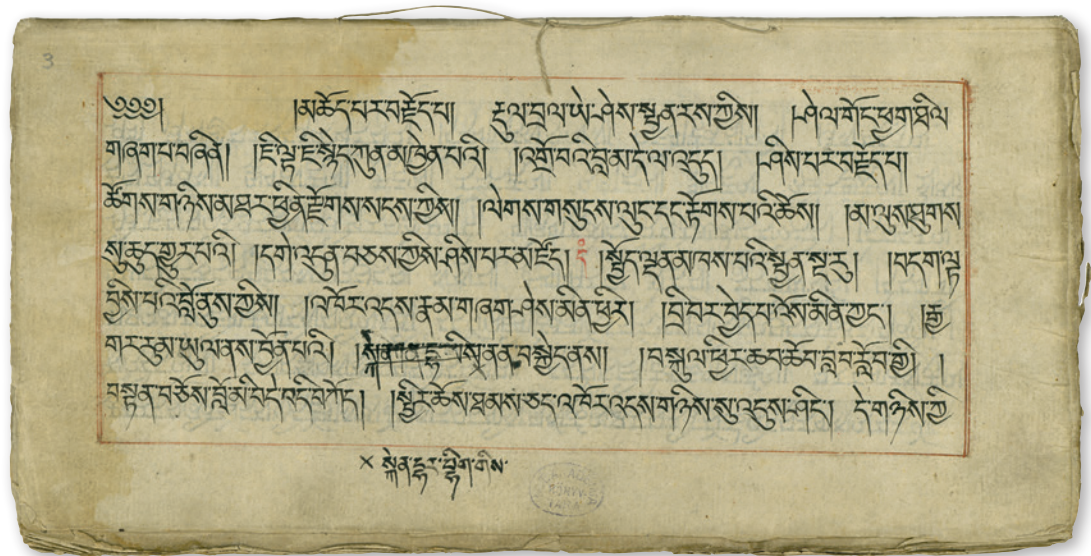 3
༄༅༅། །མཆོད་པར་བརྗོད་པ། རྡུལ་བྲལ་ཡེ་ཤེས་སྤྱན་རས་ཀྱིས། །ཤེལ་གོང་ཕྱག་མཐིལ
གཞག་པ་བཞིན། །ཇི་ལྟ་ཇི་སྙེད་ཀུན་མཁྱེན་པའི། །འགྲོ་བའི་བླ་མ་དེ་ལ་འདུད། །ཤིས་པར་བརྗོད་པ།
ཚོགས་གཉིས་མཐར་ཕྱིན་རྫོགས་སངས་ཀྱིས། །ལེགས་གསུངས་ལུང་དང་རྟོགས་པའི་ཆོས། །མ་ལུས་ཐུགས
སུ་ཆུད་གྱུར་པའི། །དགེ་འདུན་བཅས་ཀྱིས་ཤིས་པར་མཛོད། །སྤྱོད་ལྡན་མཁས་པའི་སྤྱན་སྔ་རུ། །བདག་ལྟ
བྱིས་པའི་བློ་ནུས་ཀྱིས། །འཁོར་འདས་རྣམ་གཞག་ཤེས་མིན་ཕྱིར། །བྲི་བར་བྱེད་པ་འོས་མིན་ཀྱང་། །རྒྱ
གར་རུམ་ཡུལ་ནས་བྱོན་པའི། །སྙན་ནས་བསྐྱེད་ནས། །བསྐུལ་ཕྱིར་ཆབ་ཆོབ་བླབ་རློབ་ཀྱི། །
བསྟན་བཅོས་བློ་མིད་འདི་བཀོད། །སྤྱིར་ཆོས་ཐམས་ཅད་འཁོར་འདས་གཉིས་སུ་འདུས་ཤིང་། དེ་གཉིས་ཀྱི
× སྐེན་དྷར་བྷེག་གིས་